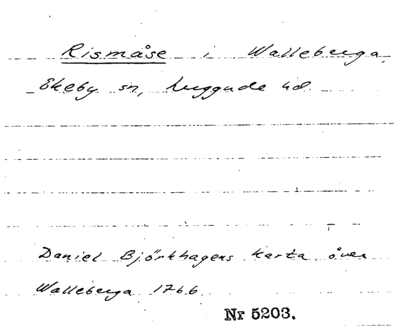 Rismåse i Walleberga,
Ekeby sn, Luggude hd.
Daniel Björkhagens karta över
Walleberga 1766
Nr 5203.